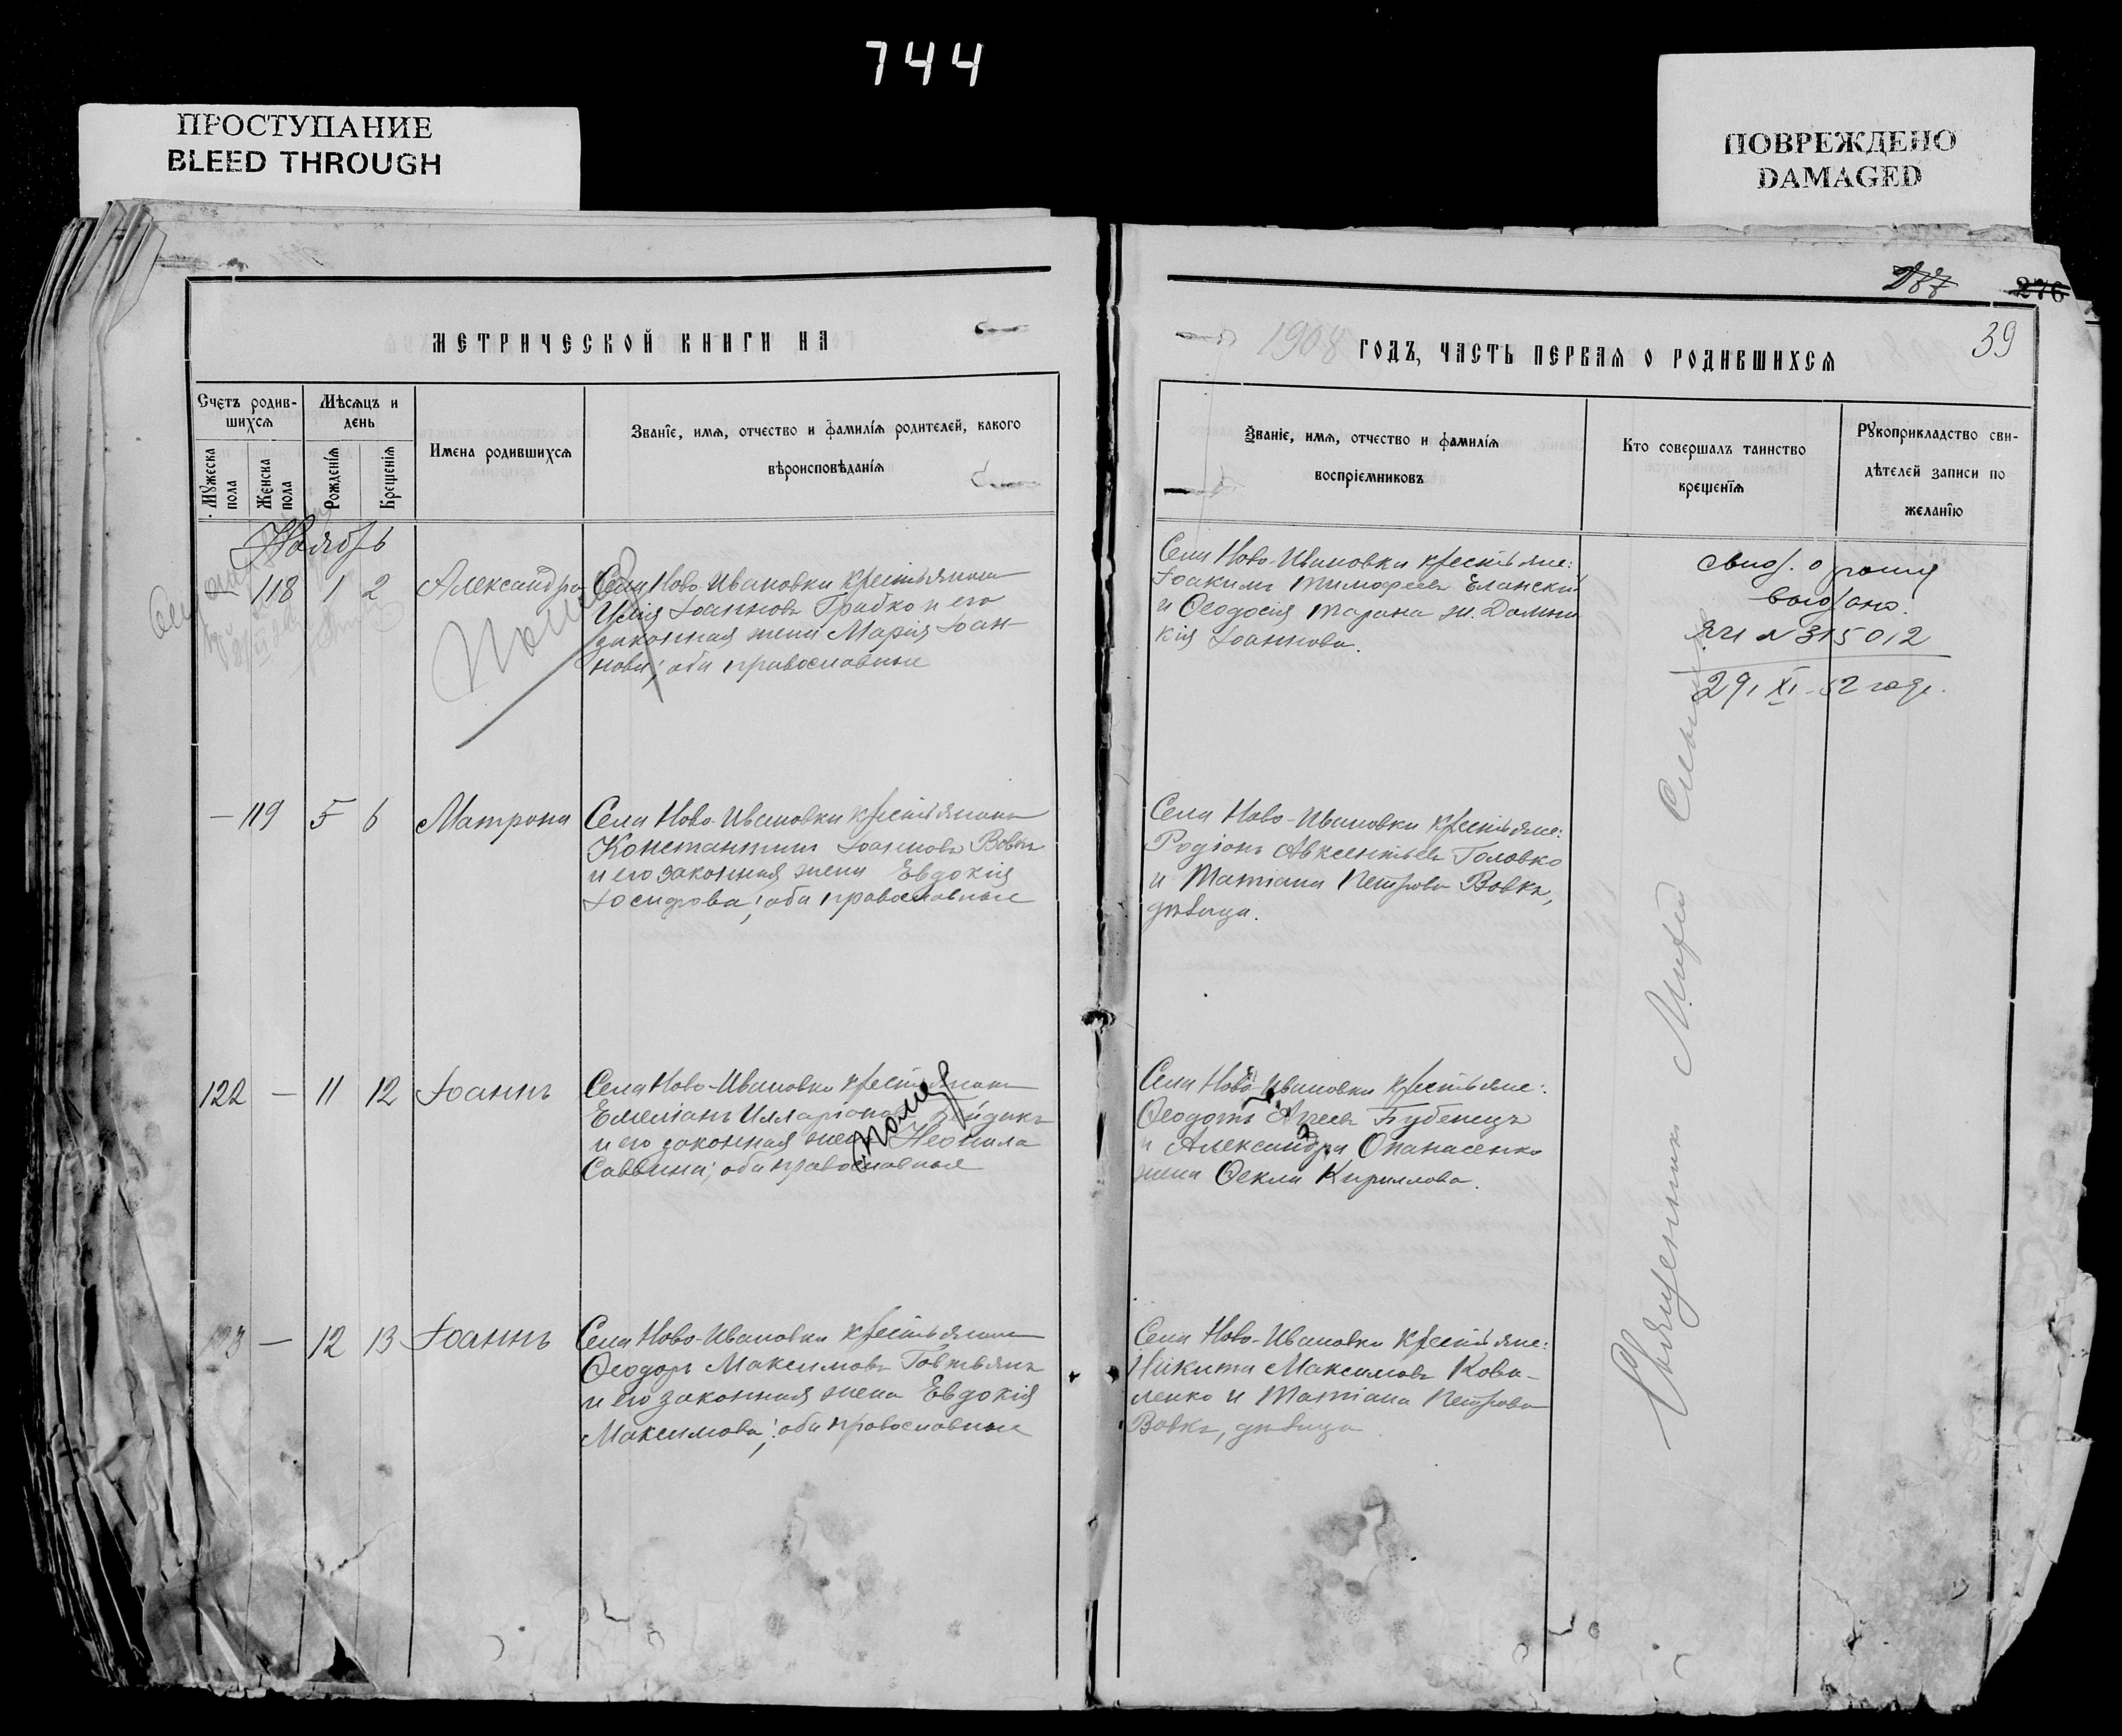 744
ПРОСТУПАНИЕ
BLEED THROUGH
ПОВРЕЖДЕНО
DAMAGED
276
39
МЕТРИЧЕСКОЙ КНИГИ НА
1908 ГОДЪ, ЧАСТЬ ПЕРВАЯ О РОДИВШИХСЯ
Счетъ родив-
шихся
Мужеска пола
Женска пола
Мѣсяцъ и
день
Рожденія
Крещенія
Имена родившихся
Званіе, имя, отчество и фамилія родителей, какого
вѣроисповѣданія
Званіе, имя, отчество и фамилія
воспріемниковъ
Кто совершалъ таинство
крещенія
Рукоприкладство сви-
дѣтелей записи по
желанію
Ноябрь
118 1 2 Александра
Села Ново-Ивановки крестьянинъ
Іоанновъ Грабко и его
законная жена Марія Іоан-
нова; оба православные
Села Ново-Ивановки крестьяне:
Іоакимъ Тимофеевъ Еланскій
и Ѳеодосія Тарана ж. Домни
кія Іоаннова.
свид. о рожд
выдано.
ЯЧ № 315012
29, XI - 52 года.
— 119 5 6 Матрона
Села Ново-Ивановки крестьянинъ
Константинъ Іоанновъ Вовкъ
и его законная жена Евдокія
Іосифова; оба православные
Села Ново-Ивановки крестьяне:
Родіонъ Авксентьевъ Головко
и Татіана Петрова Вовкъ,
дѣвица.
122 — 11 12 Іоаннъ
Села Ново-Ивановки крестьянинъ
Емеліанъ Илларіоновъ
и его законная жена Неонила
Саввина; оба православные
Села Ново-Ивановки крестьяне:
Ѳеодотъ Агеевъ Бубенецъ
и Александра Опанасенко
жена Ѳекла Кириллова.
123 — 12 13 Іоаннъ
Села Ново-Ивановки крестьянинъ
Ѳеодоръ Максимовъ Говтвянъ
и его законная жена Евдокія
Максимова; оба православные
Села Ново-Ивановки крестьяне:
Никита Максимовъ Кова-
ленко и Татіана Петрова
Вовкъ, дѣвица
Священникъ